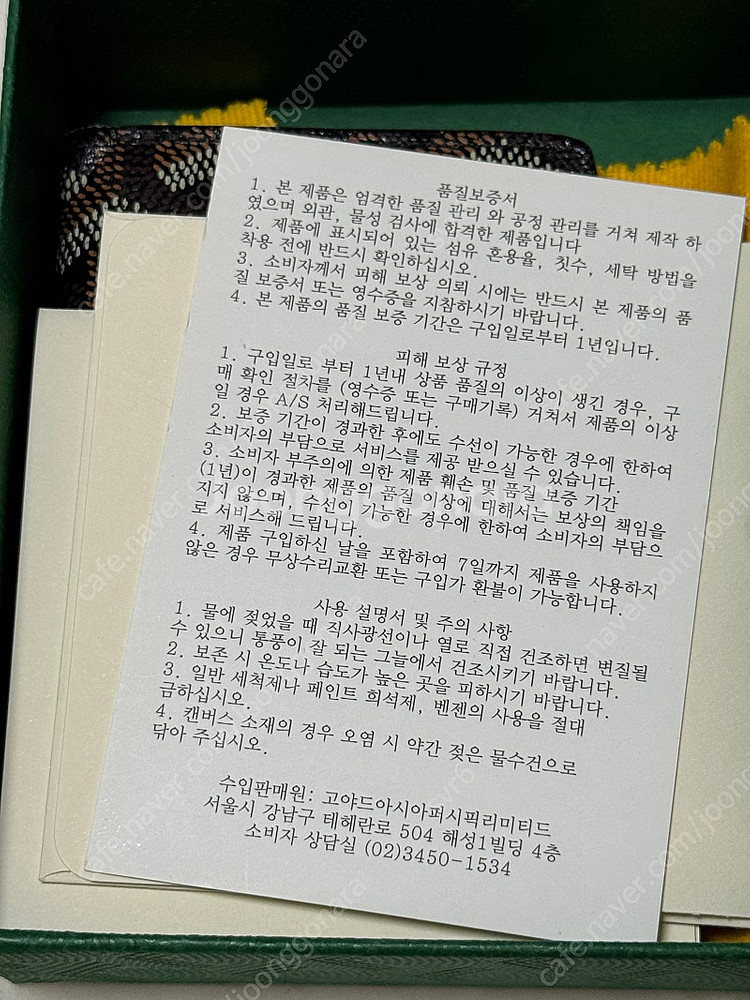 품질보증서
1. 본 제품은 엄격한 품질 관리 와 공정 관리를 거쳐 제작 하
였으며 외관, 물성 검사에 합격한 제품입니다
2. 제품에 표시되어 있는 섬유 혼용율, 칫수, 세탁 방법을
착용 전에 반드시 확인하십시오.
3. 소비자께서 피해 보상 의뢰 시에는 반드시 본 제품의 품
질 보증서 또는 영수증을 지참하시기 바랍니다.
4. 본 제품의 품질 보증 기간은 구입일로부터 1년입니다.
피해 보상 규정
1. 구입일로 부터 1년내 상품 품질의 이상이 생긴 경우, 구
매 확인 절차를 (영수증 또는 구매기록) 거쳐서 제품의 이상
일 경우 A/S 처리해드립니다.
2. 보증 기간이 경과한 후에도 수선이 가능한 경우에 한하여
소비자의 부담으로 서비스를 제공 받으실 수 있습니다.
3. 소비자 부주의에 의한 제품 훼손 및 품질 보증 기간
(1년)이 경과한 제품의 품질 이상에 대해서는 보상의 책임을
지지 않으며, 수선이 가능한 경우에 한하여 소비자의 부담으
로 서비스해 드립니다.
4. 제품 구입하신 날을 포함하여 7일까지 제품을 사용하지
않은 경우 무상수리교환 또는 구입가 환불이 가능합니다.
사용 설명서 및 주의 사항
1. 물에 젖었을 때 직사광선이나 열로 직접 건조하면 변질될
수 있으니 통풍이 잘 되는 그늘에서 건조시키기 바랍니다.
2. 보존 시 온도나 습도가 높은 곳을 피하시기 바랍니다.
3. 일반 세척제나 페인트 희석제, 벤젠의 사용을 절대
금하십시오.
4. 캔버스 소재의 경우 오염 시 약간 젖은 물수건으로
닦아 주십시오.
수입판매원: 고야드아시아퍼시픽리미티드
서울시 강남구 테헤란로 504 해성1빌딩 4층
소비자 상담실 (02)3450-1534
cafe.naver.com/joonggonara